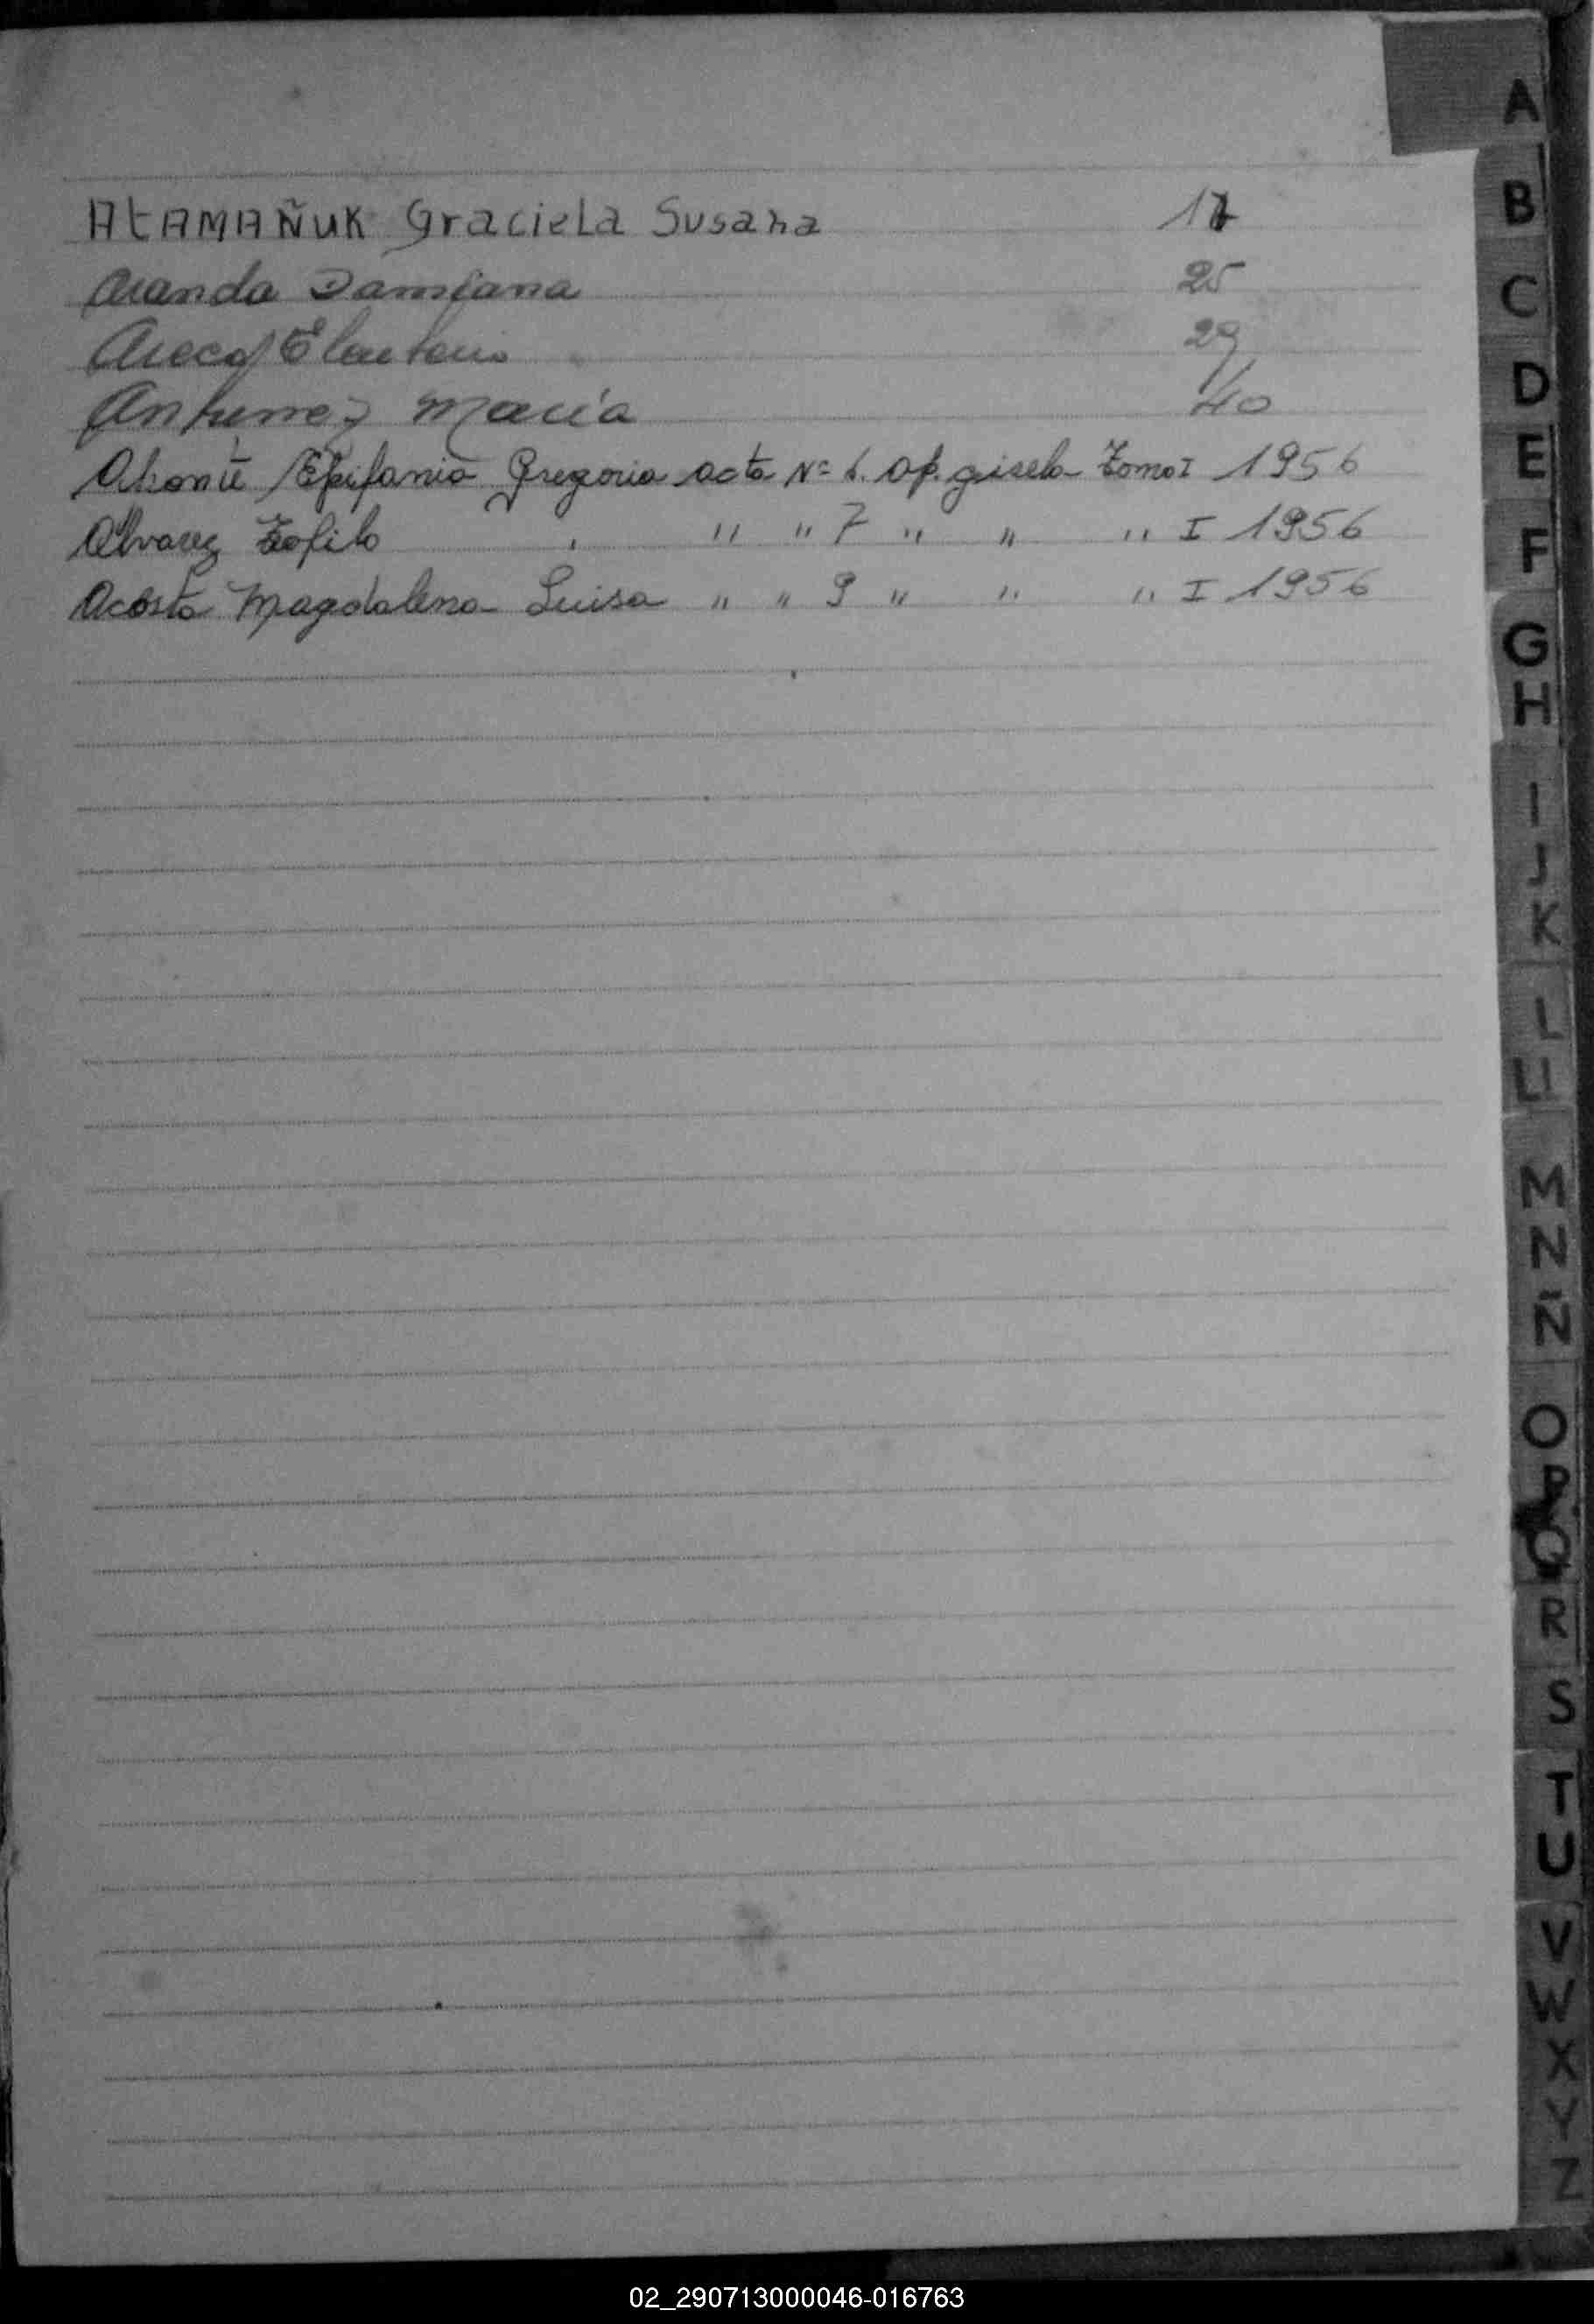 AtAMAÑUK Graciela Susana 17
Aranda Damiana 25
Areco Eleuterio 29
María 40
Epifania Gregoria acta Nº 6. Op. gisela Tomo I 1956
Alvarez Teofilo " " 7 " " " I 1956
Acosta Magdalena Luisa " " 9 " " " I 1956
A
B
C
D
E
F
G
H
I
J
K
L
LL
M
N
Ñ
O
P
Q
R
S
T
U
V
W
X
Y
Z
02_290713000046-016763